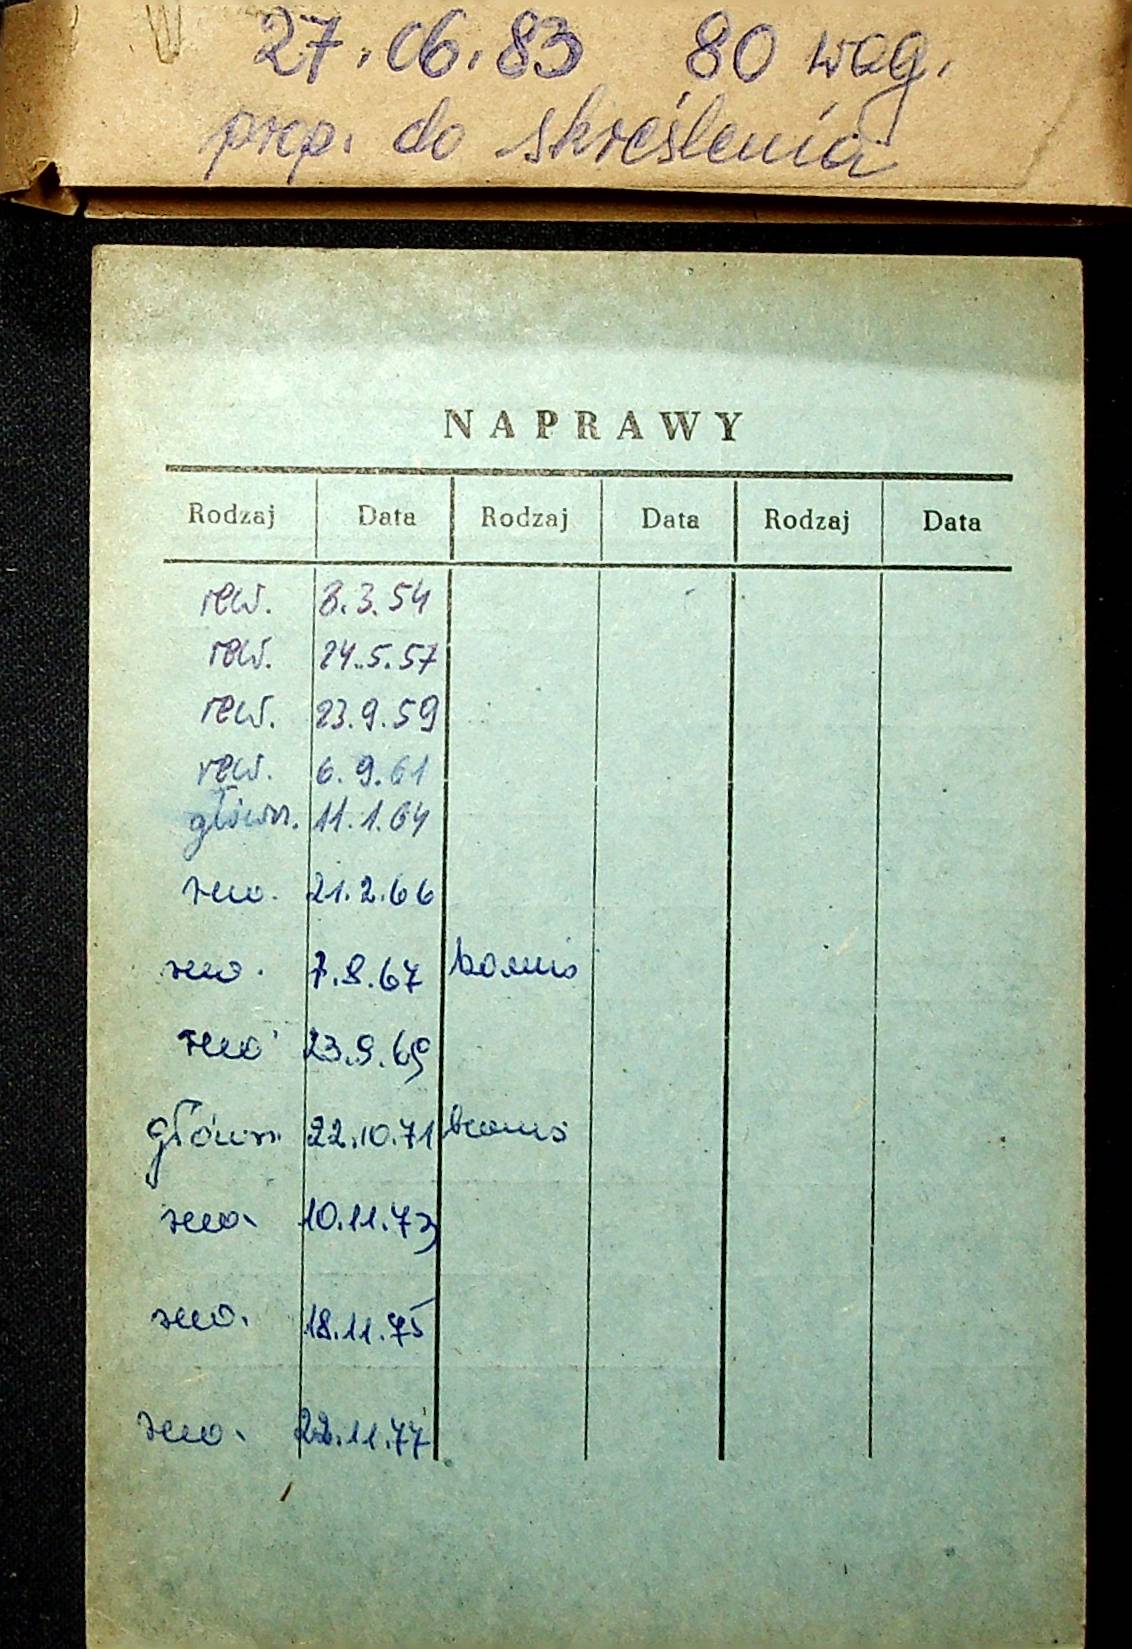 27.06.83 80 wag.
prop. do skreślenia
NAPRAWY
Rodzaj Data Rodzaj Data Rodzaj Data
rew. 8.3.54
rew. 24.5.57
rew. 23.9.59
rew. 6.9.61
główn. 11.1.64
rew. 21.2.66
rew. 7.8.67
rew. 23.9.69
główn. 22.10.71
rew. 10.11.73
rew. 18.11.75
rew. 22.11.77